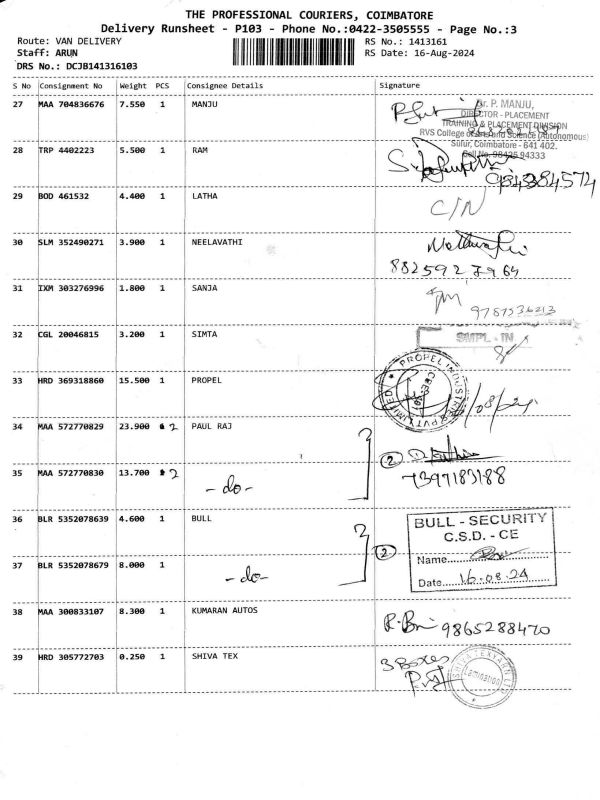 THE PROFESSIONAL COURIERS, COIMBATORE
Delivery Runsheet - P103 - Phone No.:0422-3505555 - Page No.:3
Route: VAN DELIVERY RS No.: 1413161
Staff: ARUN RS Date: 16-Aug-2024
DRS No.: DCJB141316103
S No Consignment No Weight PCS Consignee Details Signature
27 MAA 704836676 7.550 1 MANJU
Dr. P. MANJU,
DIRECTOR - PLACEMENT
TRAINING & PLACEMENT DIVISION
RVS College of Arts and Science (Autonomous)
Sulur, Coimbatore - 641 402.
Cell No. 98425 94333
28 TRP 4402223 5.500 1 RAM
29 BOD 461532 4.400 1 LATHA C/N
30 SLM 352490271 3.900 1 NEELAVATHI
8825927964
31 IXM 303276996 1.800 1 SANJA
32 CGL 20046815 3.200 1 SIMTA SMPL - IN
33 HRD 369318860 15.500 1 PROPEL
PROPEL INDUSTRIES PVT LIMITED
34 MAA 572770829 23.900 2 PAUL RAJ 2
35 MAA 572770830 13.700 2 - do - 7397183188
36 BLR 5352078639 4.600 1 BULL 2
BULL - SECURITY
C.S.D. - CE
Name
37 BLR 5352078679 8.000 1 - do -
Date 16.08.24
38 MAA 300833107 8.300 1 KUMARAN AUTOS 9865288470
39 HRD 305772703 0.250 1 SHIVA TEX 3 Boxes
Lamination